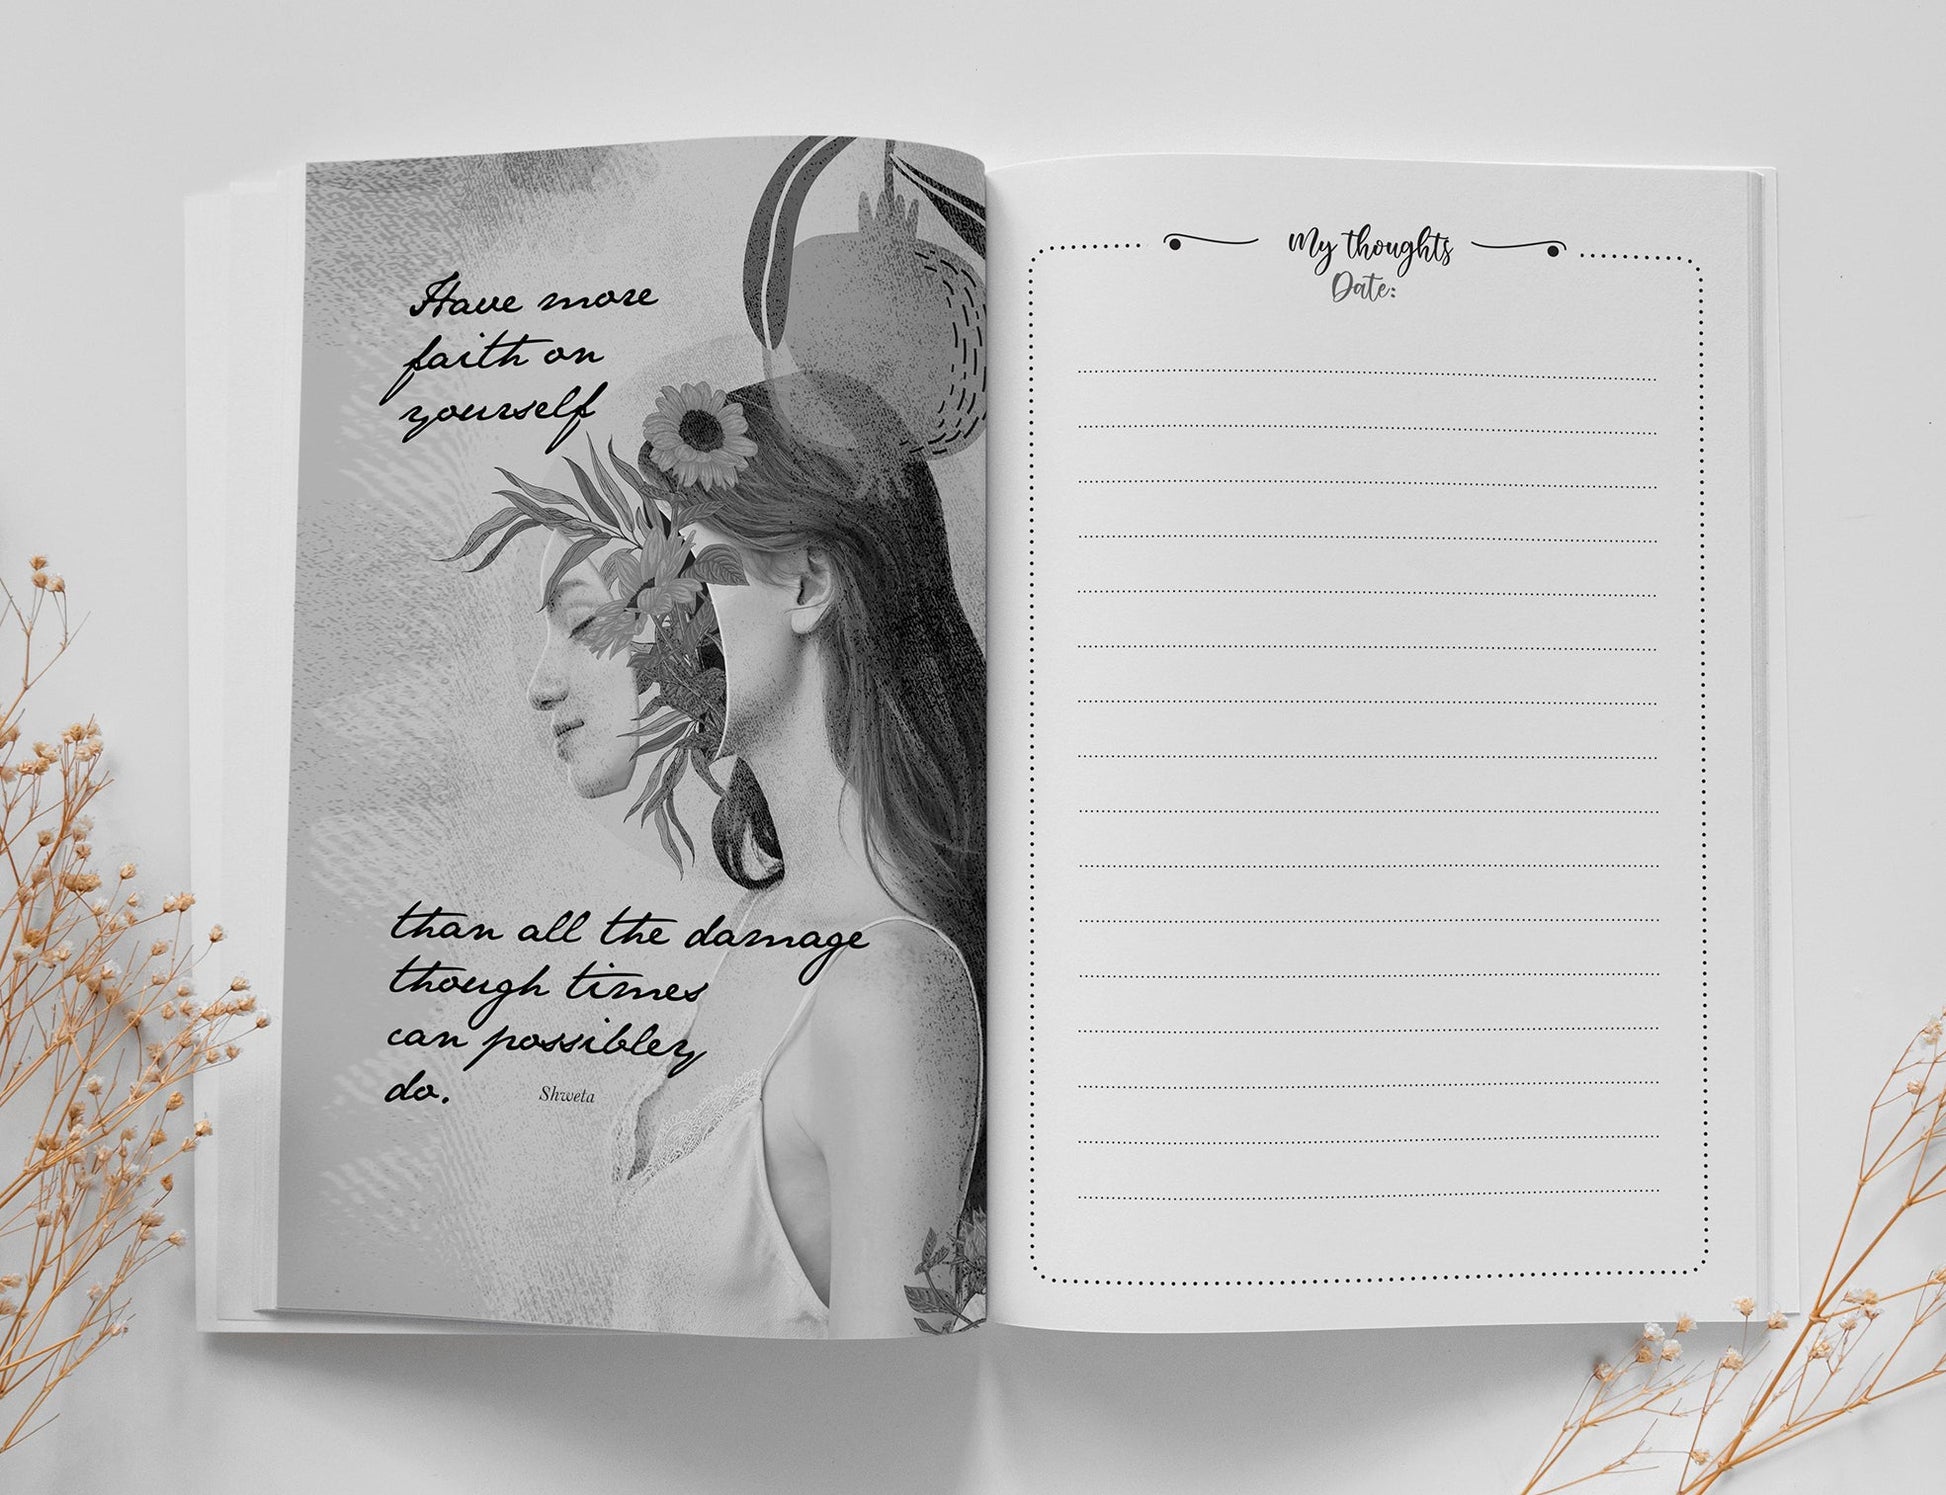 Have more
faith on
yourself
than all the damage
though times
can possibley
do.
Shweta
My thoughts
Date: